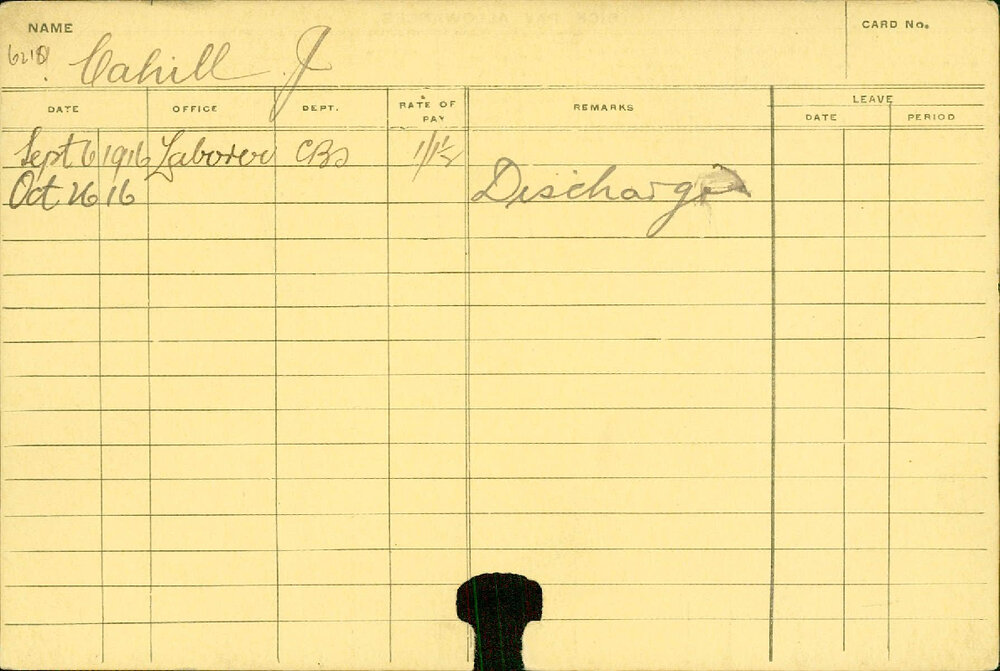 NAME
CARD No.
Cahill J
DATE OFFICE DEPT. RATE OF PAY REMARKS LEAVE
DATE PERIOD
Sept 6 1916 Laborer 1/1½
Oct 26 16 Discharge